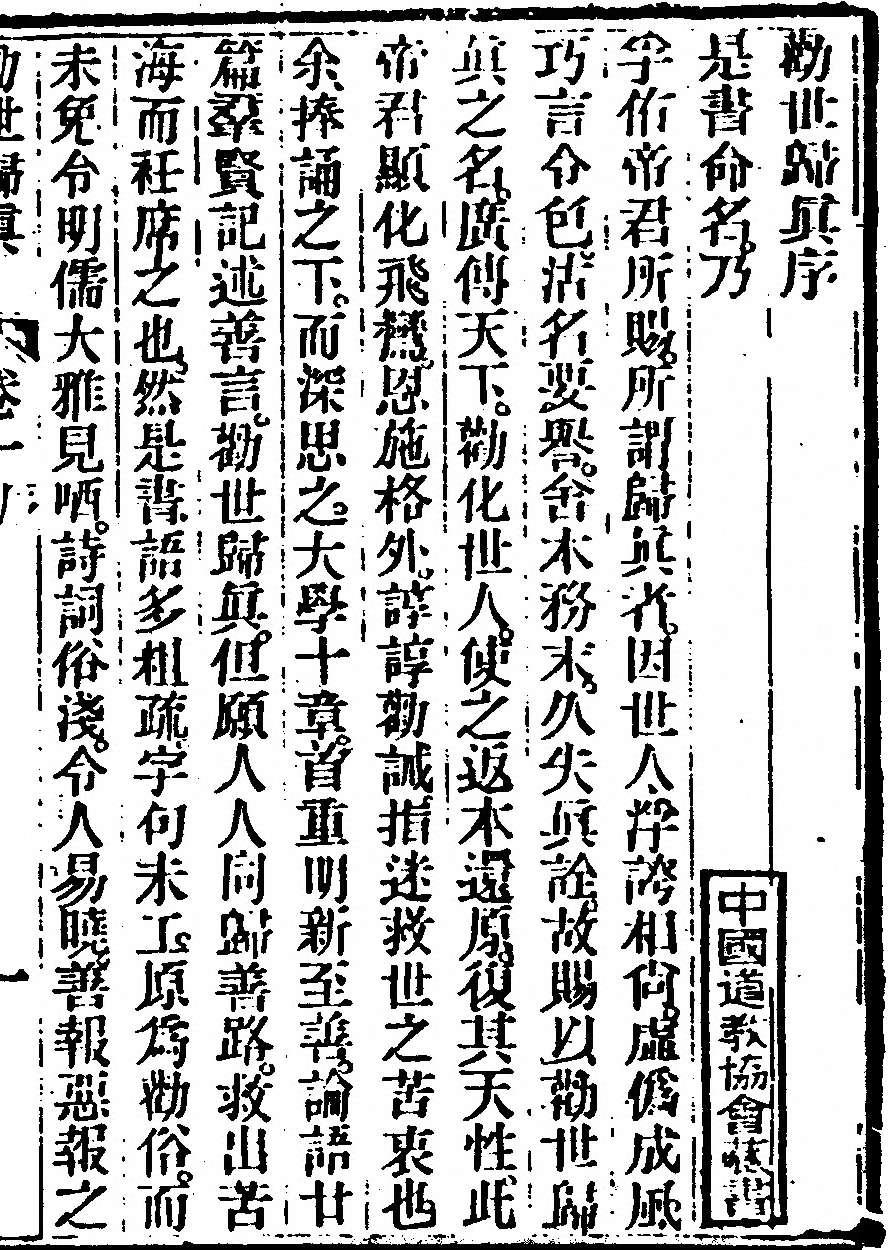 勸世歸眞序
是書命名。乃
孚佑帝君所賜。所謂歸眞者。因世人浮誇相尙。虛僞成風
巧言令色。沽名要譽。舍本務末。久失眞詮。故賜以勸世歸
眞之名。廣傳天下。勸化世人。使之返本還原。復其天性。此
帝君顯化飛鸞。恩施格外。諄諄勸誡。指迷救世之苦衷也
余捧誦之下。而深思之。大學十章。首重明新至善。論語廿
篇。羣賢記述善言。勸世歸眞。但願人人同歸善路。救出苦
海而衽席之也。然是書語多粗疏。字句未工。原爲勸俗。而
未免令明儒大雅見哂。詩詞俗淺。令人易曉。善報惡報之
勸世歸眞
卷一
序
一
中國道教協會藏書